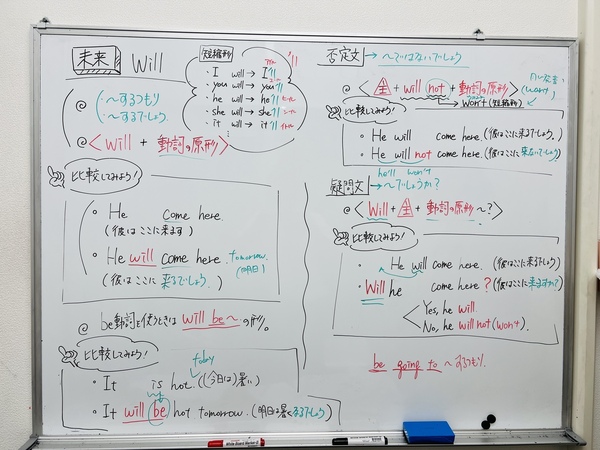 未来 Will
短縮形
・I will → I'll
・you will → you'll
・he will → he'll
・she will → she'll
・it will → it'll
@ ～するつもり
～するでしょう
@ <will + 動詞の原形>
比較してみよう!
・He Come here
(彼はここに来ます)
・He will come here. tomorrow.
(明日)
(彼はここに来るでしょう.)
@ be動詞を使うときは will be～ の形。
比較してみよう!
today
・It is hot. ((今日は)暑い)
・It will be hot tomorrow. (明日は暑くなるでしょう)
否定文 → ～ではないでしょう
@ <主 + will not + 動詞の原形>
(won't)
→ won't (短縮形)
比較してみよう!
・He will come here. (彼はここに来るでしょう.)
・He will not come here. (彼はここに来ないでしょう)
he'll won't
疑問文 → ～でしょうか?
@ <Will + 主 + 動詞の原形 ~?>
比較してみよう!
He will come here. (彼はここに来るでしょう)
・Will he come here? (彼はここに来ますか?)
Yes, he will.
No, he will not (won't).
be going to ～するつもり.